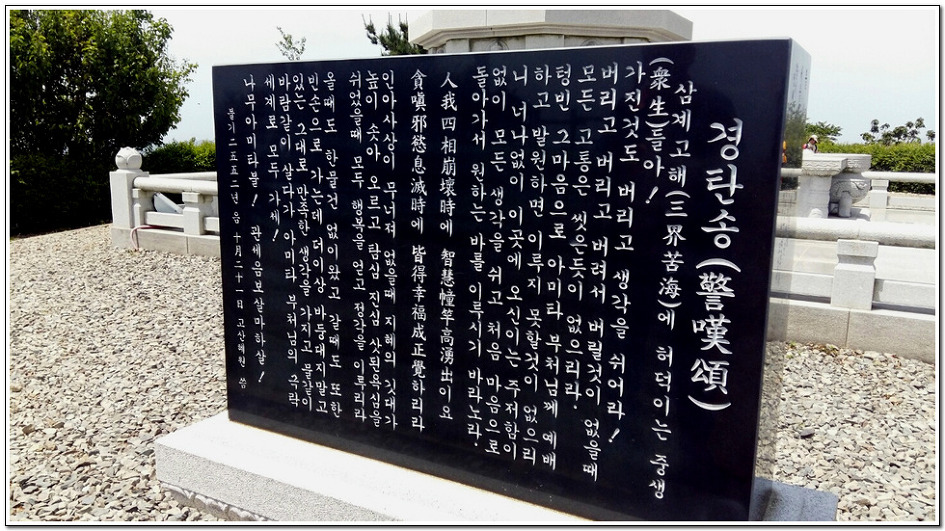 경탄송(警嘆頌)
삼계고해(三界苦海)에 허덕이는 중생
(衆生)들아!
가진것도 버리고 생각을 쉬어라!
버리고 버리고 버려서 버릴것이 없을때
모든 고통은 씻은듯이 없으리라.
텅빈 그마음으로 아미타 부처님께 예배
하고 발원하면 이루지 못할것이 없으리
니 너나없이 이곳에 오신이는 주저함이
없이 모든 생각을 쉬고 처음 마음으로
돌아가서 원하는 바를 이루시기 바라노라.
人我四相崩壞時에 智慧幢竿高湧出이요
貪嗔邪慾息滅時에 皆得幸福成正覺하리라
인아사상이 무너져 없을때 지혜의 깃대가
높이 솟아 오르고 탐심 진심 삿된욕심을
쉬었을때 모두 행복을 얻고 정각을 이루리라
올때도 한물건 없이왔고 갈때도 또한
빈손으로 가는데 더이상 바둥대지말고
있는 그대로 만족한 생각을 가지고 물같이
바람같이 살다가 아미타 부처님의 극락
세계로 모두 가세!
나무아미타불! 관세음보살마하살!
불기 二五五二년 음 十月二十一日 고산혜원 쓺